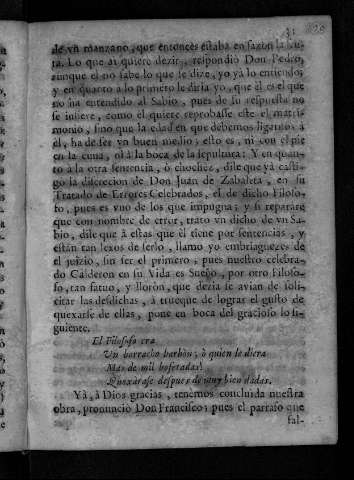 31
de vn manzano, que entonces estaba en sazon la fru-
ta. Lo que aì quiere dezir, respondiò Don Pedro,
aunque el no sabe lo que se dize, yo yà lo entiendo;
y en quanto à lo primero le diria yo, que èl es el que
no ha entendido al Sabio, pues de su respuesta no
se infiere, como èl quiere reprobasse este el matri-
monio, sino que la edad en que debemos ligarnos à
èl, ha de ser vn buen medio; esto es, ni con el pie
en la cuna, ni à la boca de la sepultura: Y en quan-
to à la otra sentencia, ò chochez, dise que yà casti-
gò la discrecion de Don Juan de Zabaleta, en su
Tratado de Errores Celebrados, el de dicho Filoso-
fo, pues es vno de los que impugna; y si reparare
que con nombre de error, tratò vn dicho de vn Sa-
bio, dile que à estas que èl tiene por sentencias, y
estàn tan lexos de serlo, llamo yo embriaguezes de
el juizio, sin ser el primero; pues nuestro celebra-
do Calderon en su Vida es Sueño, por otro Filoso-
fo, tan fatuo, y lloròn, que dezia se avian de soli-
citar las desdichas, à trueque de lograr el gusto de
quexarse de ellas, pone en boca del gracioso lo si-
guiente.
El Filosofo era
Un borracho barbòn; ò quien le diera
Mas de mil bofetadas!
Quexarase despues de muy bien dadas.
Yà, à Dios gracias, tenemos concluida nuestra
obra, pronunciò Don Francisco; pues el parrafo que
fal-